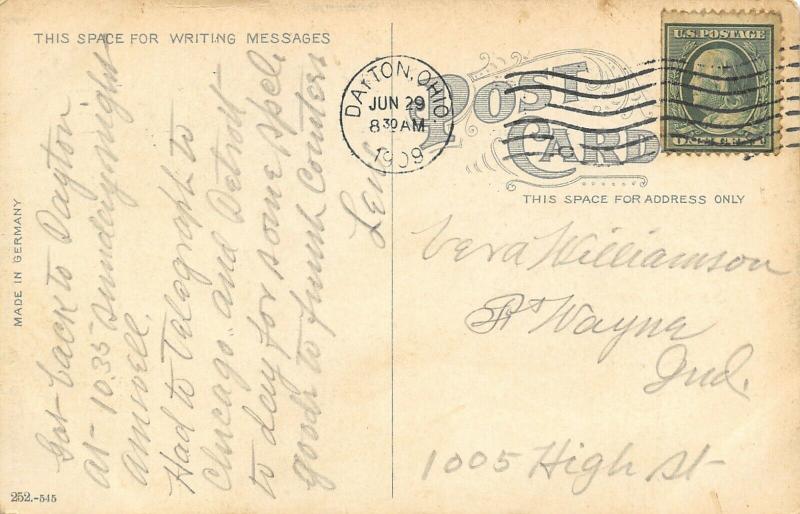 THIS SPACE FOR WRITING MESSAGES
Got back to Dayton
at 10.35 Sunday night
am well.
Had to Telegraph to
Chicago and Detroit
to day for some
goods to finish Counters
DAYTON, OHIO.
JUN 29
8 30 AM
1909
POST
CARD
U.S. POSTAGE
THIS SPACE FOR ADDRESS ONLY
Vera Williamson
Ft Wayne
Ind.
1005 High St
MADE IN GERMANY
252.-545